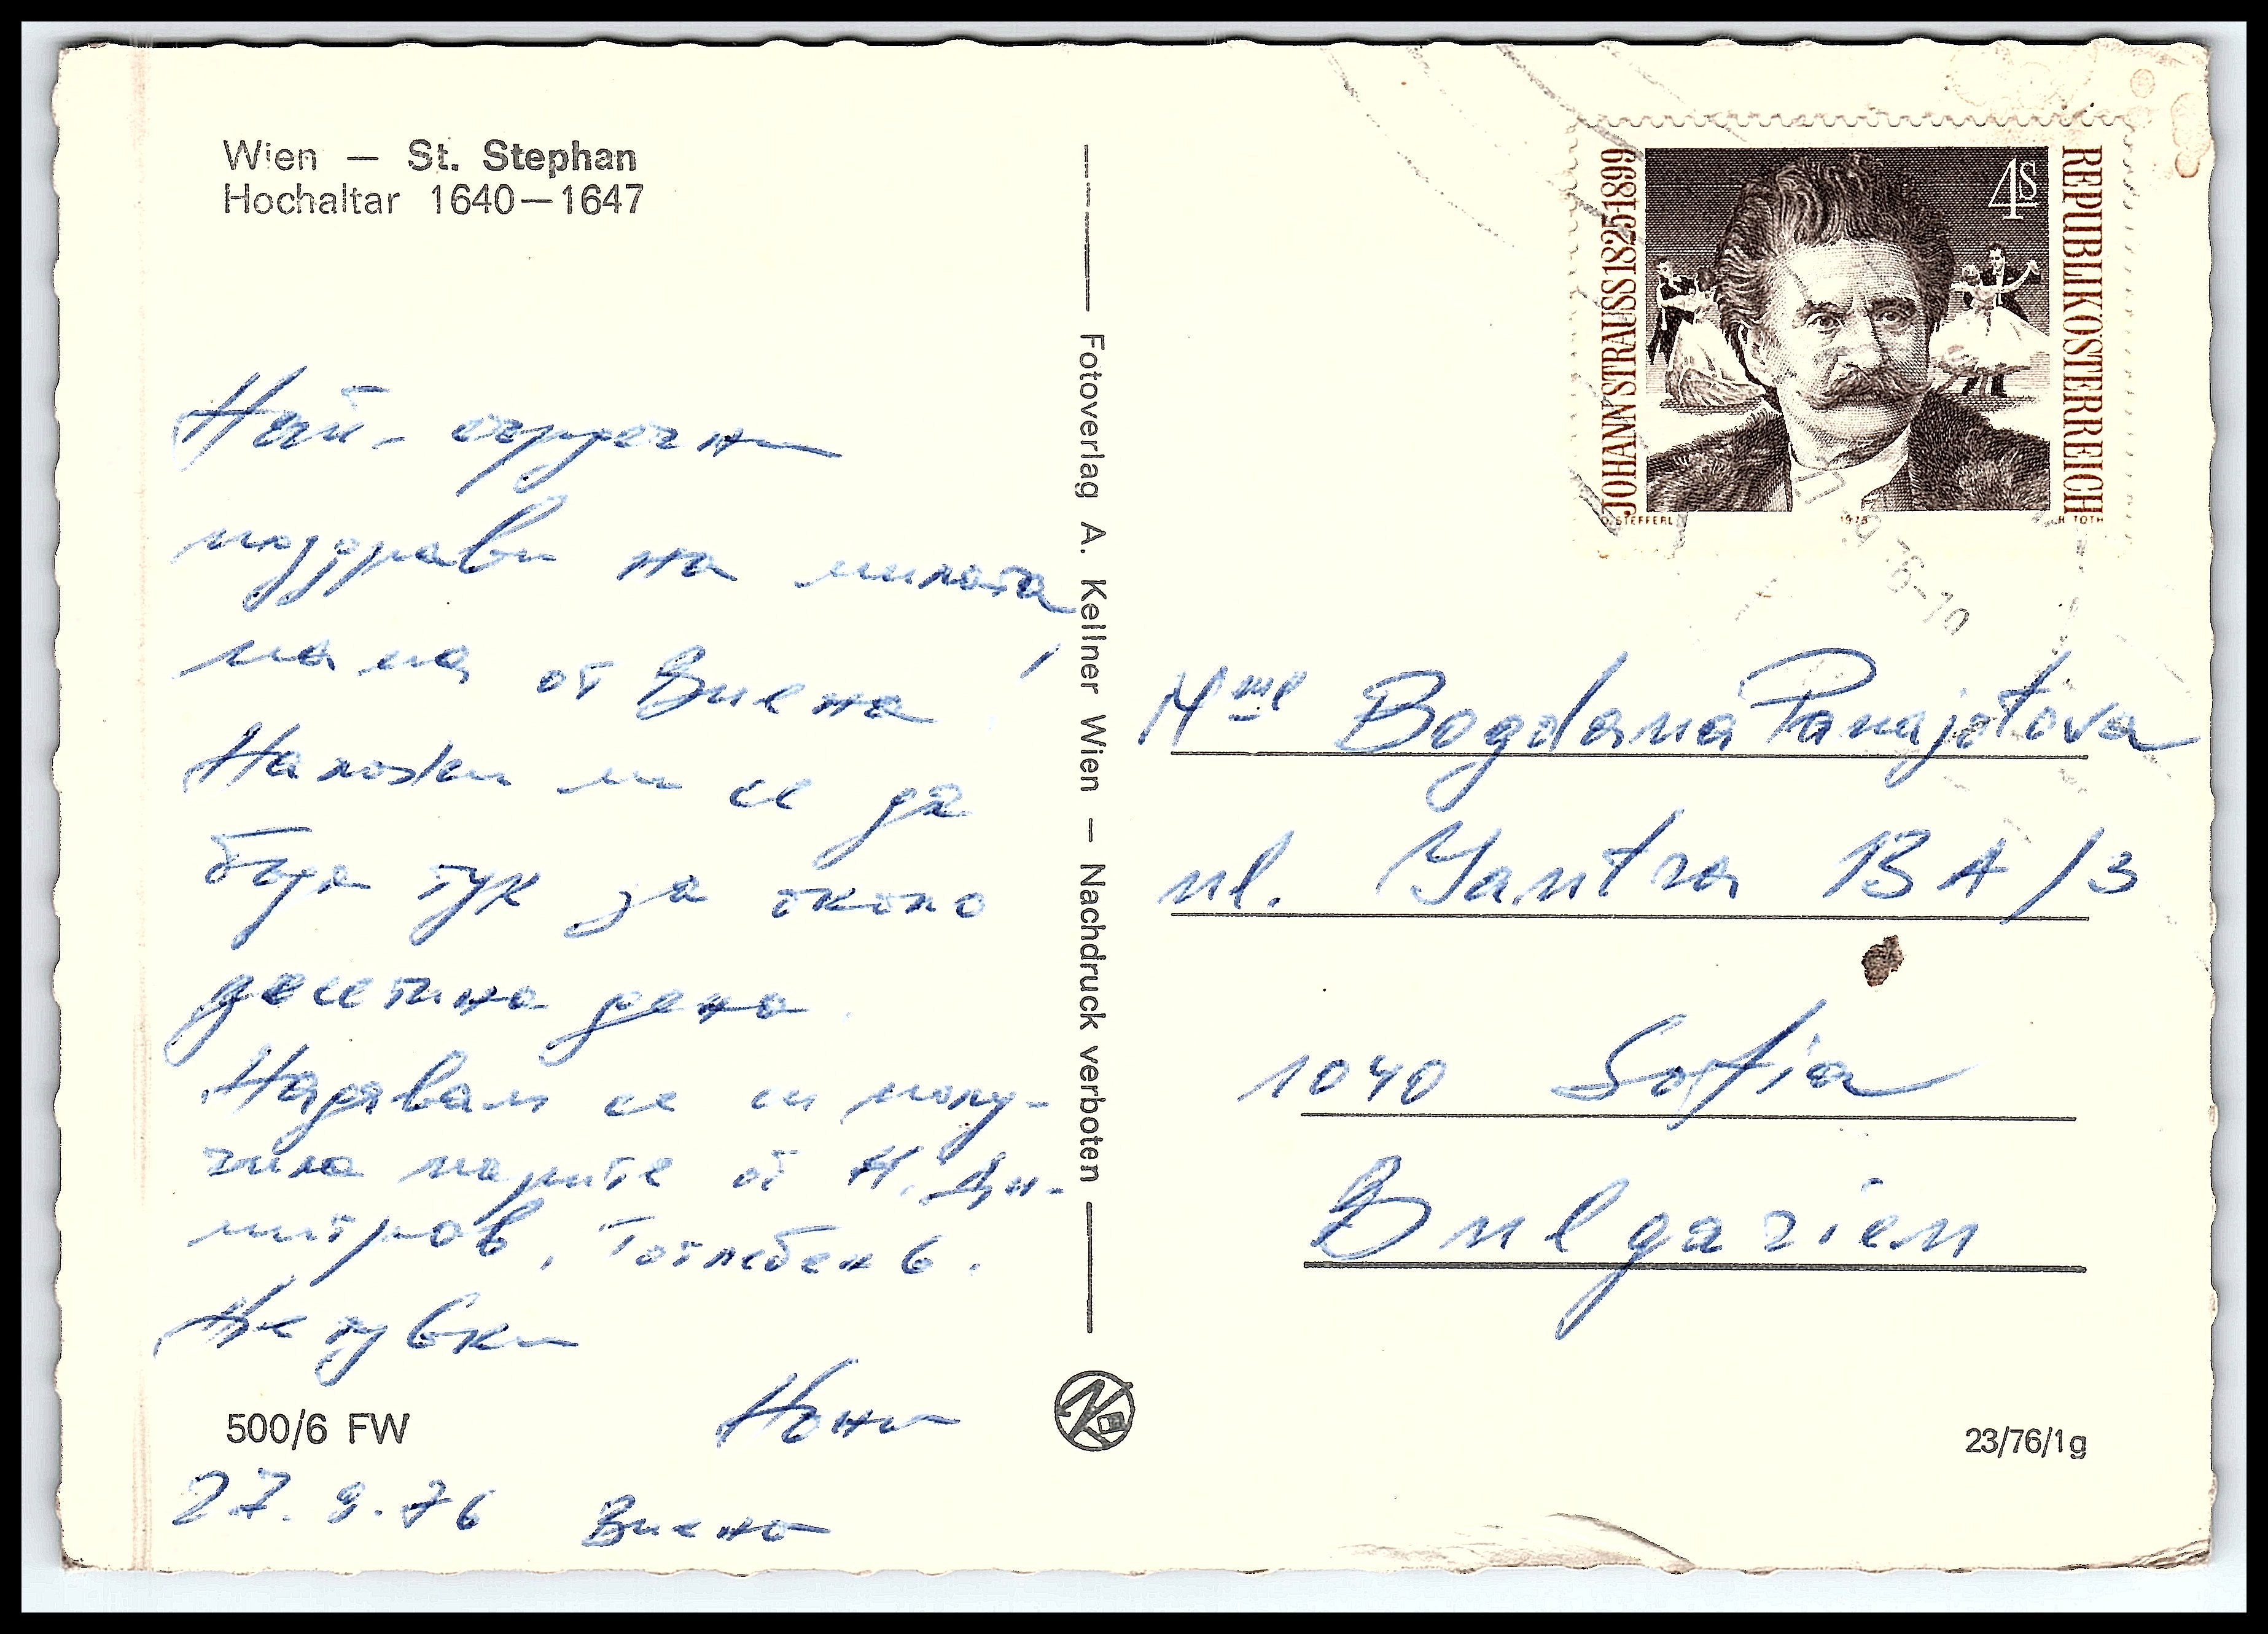 Wien — St. Stephan
Hochaltar 1640—1647
Най-сърдечни
поздрави на милата
мама от Виена!
Наложи ми се да
бъда тук за около
десетина дена.
Надявам се си полу-
чила парите от Н. Ди-
митров, Тотлебен 6.
Целувки
Нони
500/6 FW
27.9.76 Виена
Fotoverlag A. Kellner Wien — Nachdruck verboten
JOHANN STRAUSS 1825-1899
4S
REPUBLIK ÖSTERREICH
STEFFERL 1975 R. TOTH
9.76-10
Mme Bogdana Panajotova
ul. Yantra 13 A/3
1040 Sofia
Bulgarien
23/76/1g